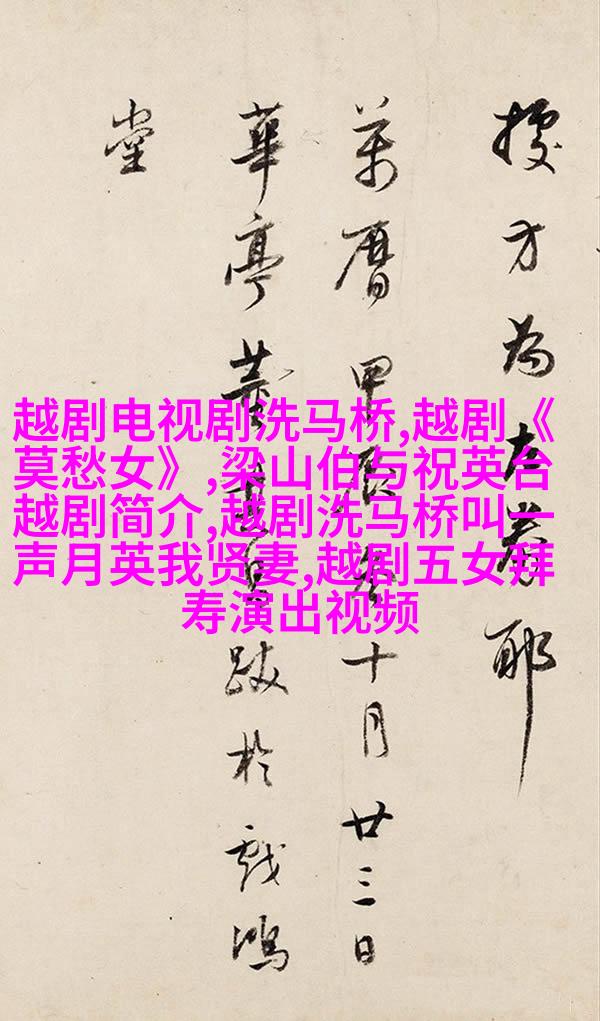 方為耶
萬曆甲辰冬十月廿三日
華亭董其昌跋於戲鴻
堂
越剧电视剧洗马桥,越剧《
莫愁女》,梁山伯与祝英台
越剧简介,越剧洗马桥叫一
声月英我贤妻,越剧五女拜
寿演出视频